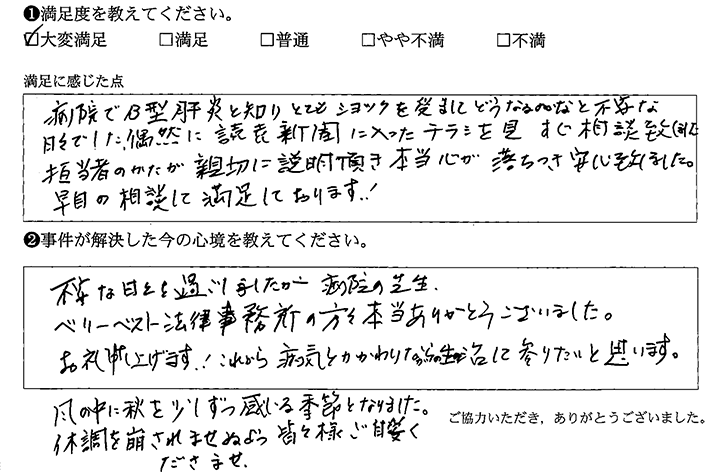 ❶満足度を教えてください。
☑大変満足 □満足 □普通 □やや不満 □不満
満足に感じた点
病院でB型肝炎と知りとてもショックを受ましてどうなるのかなと不安な
日々でした。偶然に読売新聞に入ったチラシを見 すぐ相談致しました
担当者のかたが親切に説明頂き本当心が落ちつき安心致しました。
早目の相談して満足しております。!
❷事件が解決した今の心境を教えてください。
不安な日々を過ごしましたが病院の先生、
ベリーベスト法律事務所の方々本当ありがとうございました。
お礼申し上げます。!これから病気とかかわりながらの生活して参りたいと思います。
風の中に秋を少しずつ感じる季節となりました。
体調を崩されませぬよう皆々様ご自愛く
ださませ。
ご協力いただき，ありがとうございました。